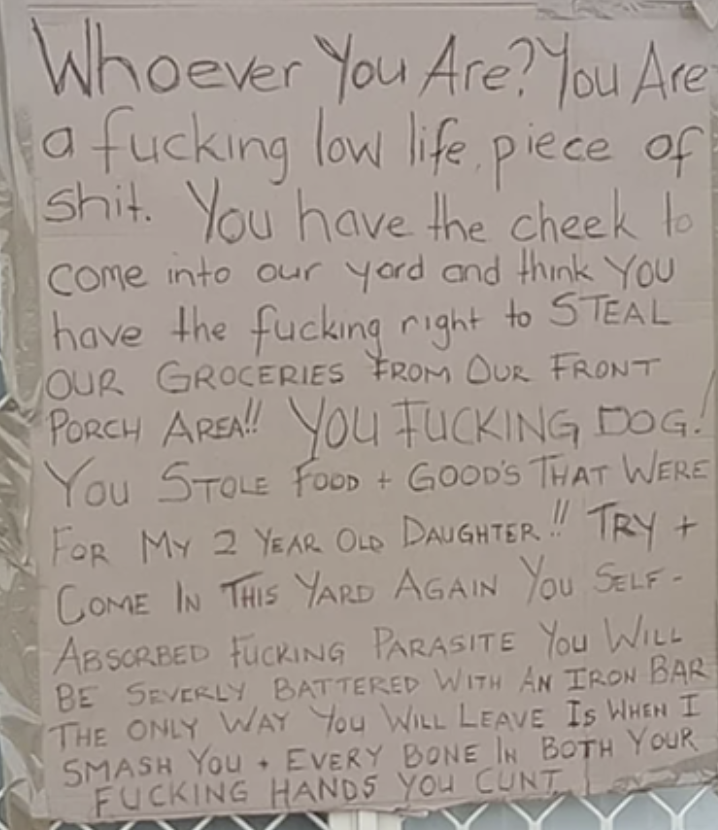 Whoever You Are? You Are
a fucking low life, piece of
shit. You have the cheek to
come into our yard and think YOU
have the fucking right to STEAL
OUR GROCERIES FROM OUR FRONT
PORCH AREA!! YOU FUCKING DOG!
YOU STOLE FOOD + GOOD'S THAT WERE
FOR MY 2 YEAR OLD DAUGHTER!! TRY +
COME IN THIS YARD AGAIN YOU SELF-
ABSORBED FUCKING PARASITE YOU WILL
BE SEVERLY BATTERED WITH AN IRON BAR
THE ONLY WAY YOU WILL LEAVE IS WHEN I
SMASH YOU + EVERY BONE IN BOTH YOUR
FUCKING HANDS YOU CUNT!